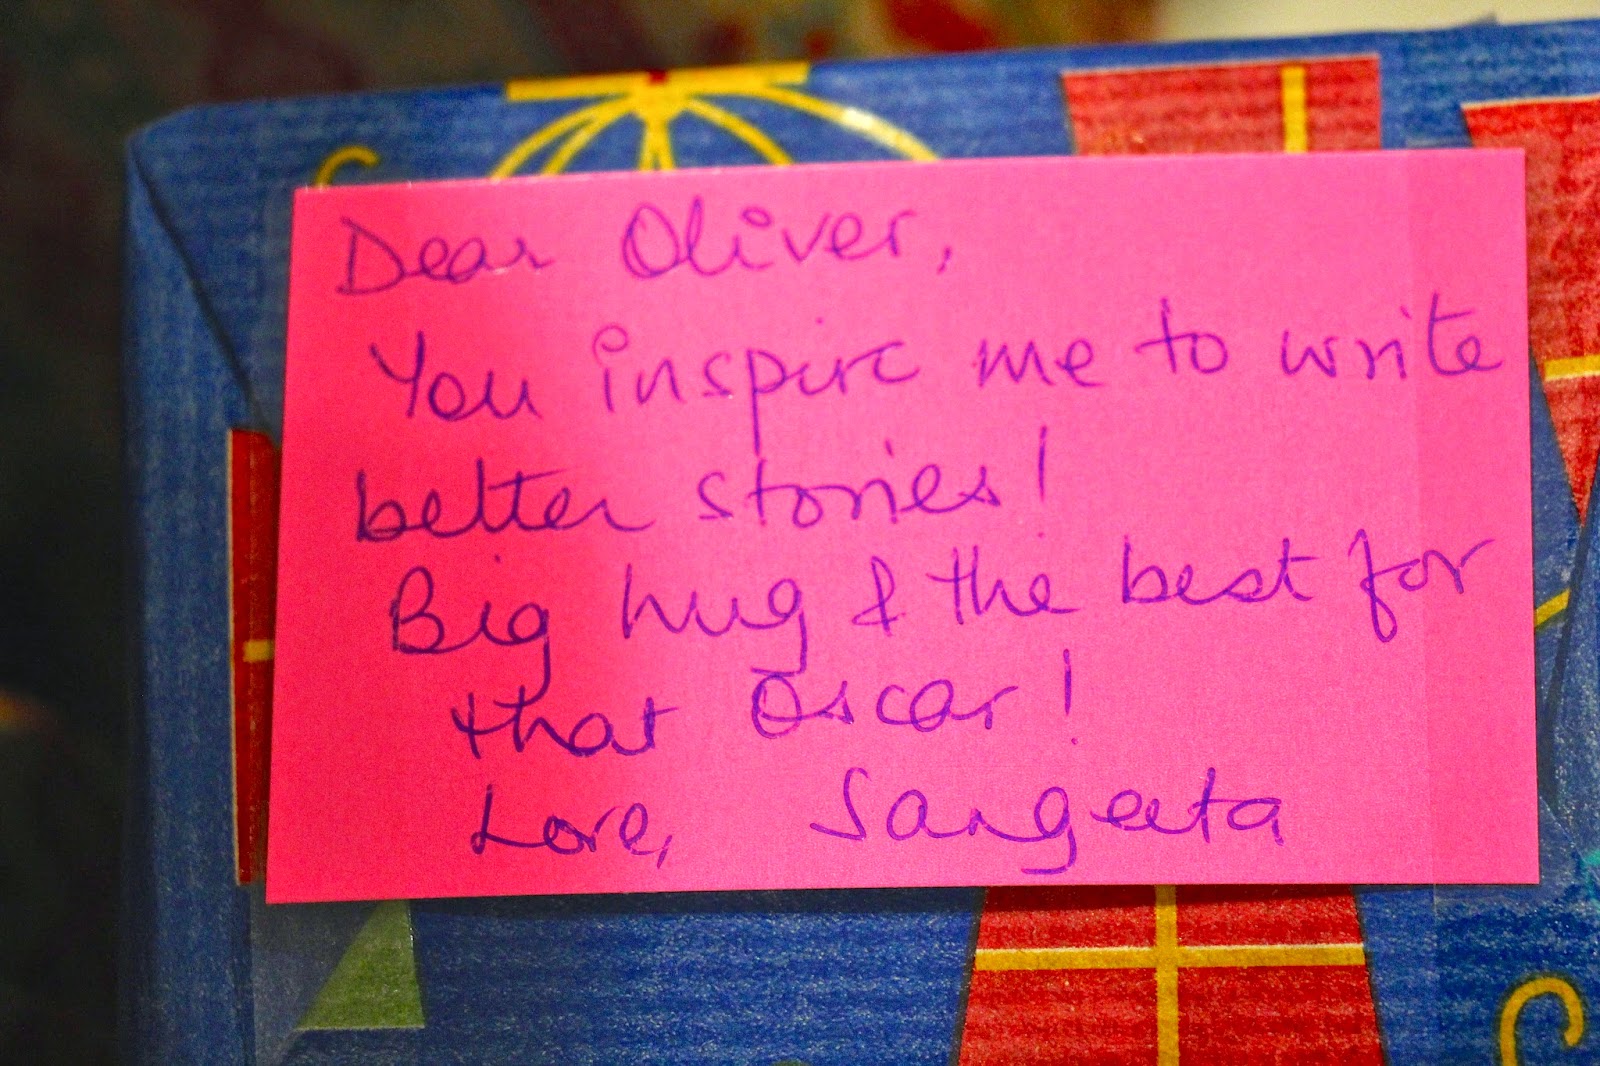 Dear Oliver,
You inspire me to write
better stories!
Big hug & the best for
that Oscar!
Love, Sangeeta